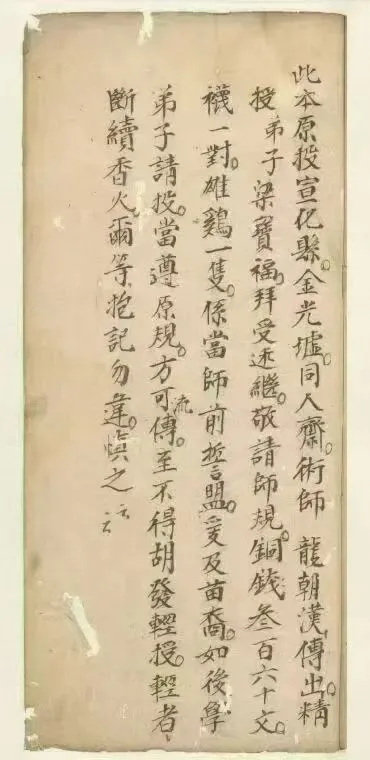 此本原投宣化縣。金光墟。同人齋。術師 龍朝漢。傳出。精
授 弟子梁寶福。拜受述繼。敬請師規。銅錢叁百六十文。
襪一對。雄鷄一隻。係當師前誓盟。爰及苗裔。如後學
弟子請投。當遵原規。方可流傳。至不得胡發輕授。輕者
斷續香火。爾等抱記勿違。慎之 云云